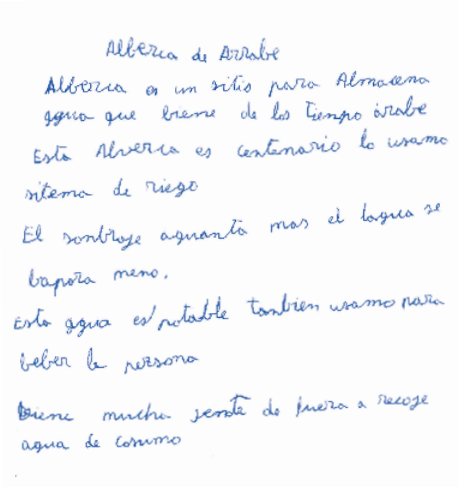 Alberca de Arrabe
Alberca es un sitio para Almacena
agua que biene de los tiempo árabe
Esta Alverca es centenario lo usamo
sitema de riego
El sonbraje aguanta mas el lagua se
bapora meno.
Esta agua es potable tanbien usamo para
beber la persona
biene mucha jente de fuera a recoje
agua de cosumo